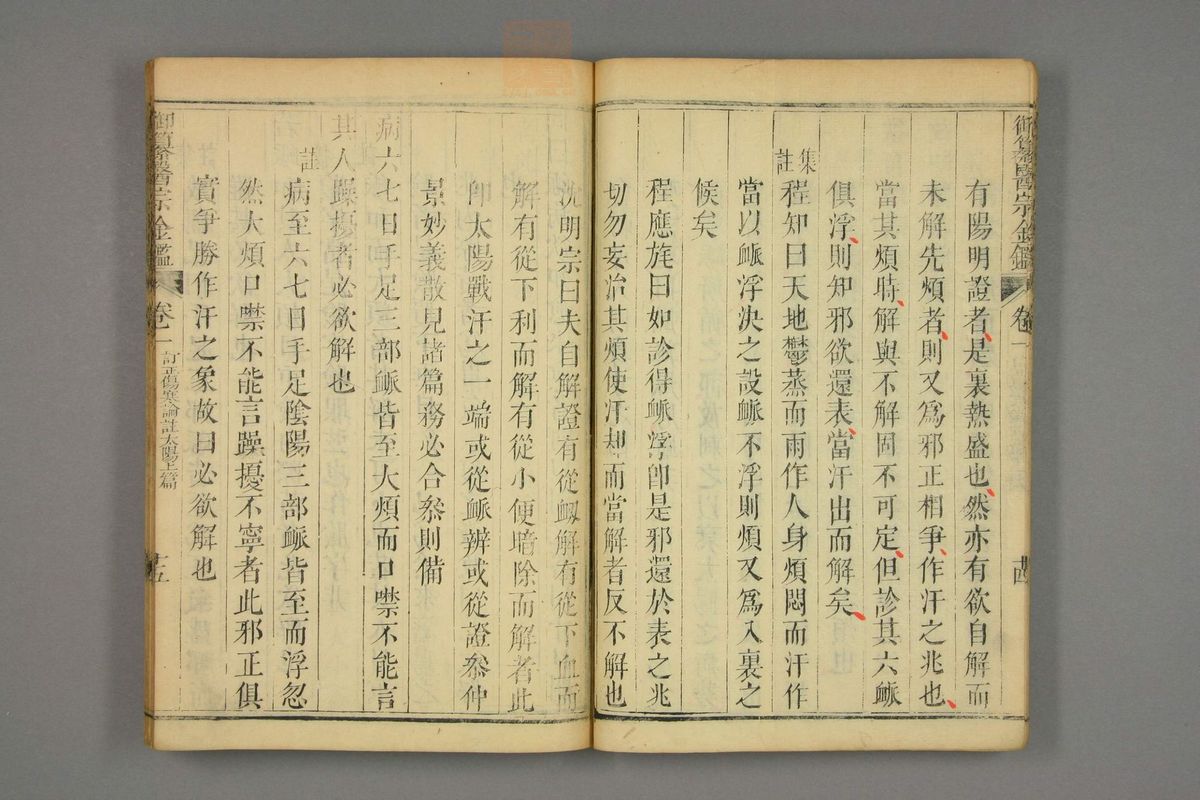 御纂醫宗金鑑 卷一 十四
有陽明證者是裏熱盛也然亦有欲自解而
未解先煩者則又爲邪正相爭作汗之兆也
當其煩時解與不解固不可定但診其六脈
俱浮則知邪欲還表當汗出而解矣
集註
程知曰天地鬱蒸而雨作人身煩悶而汗作
當以脈浮決之設脈不浮則煩又爲入裏之
候矣
程應旄曰如診得脈浮卽是邪還於表之兆
切勿妄治其煩使汗却而當解者反不解也
沈明宗曰夫自解證有從衂解有從下血而
解有從下利而解有從小便暗除而解者此
卽太陽戰汗之一端或從脈辨或從證叅仲
景妙義散見諸篇務必合叅則備
病六七日手足三部脈皆至大煩而口噤不能言
其人躁擾者必欲解也
註
病至六七日手足陰陽三部脈皆至而浮忽
然大煩口噤不能言躁擾不寧者此邪正俱
實爭勝作汗之象故曰必欲解也
御纂醫宗金鑑 卷一 訂正傷寒論註太陽上篇 十五